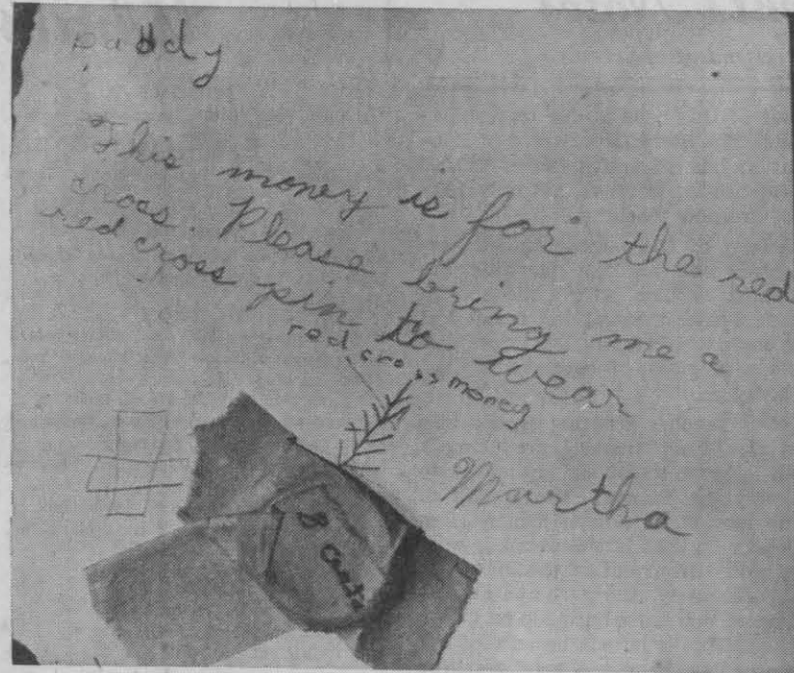 Daddy
This money is for the red
cross. Please bring me a
red cross pin to wear
red cross money
Martha
8 Cents